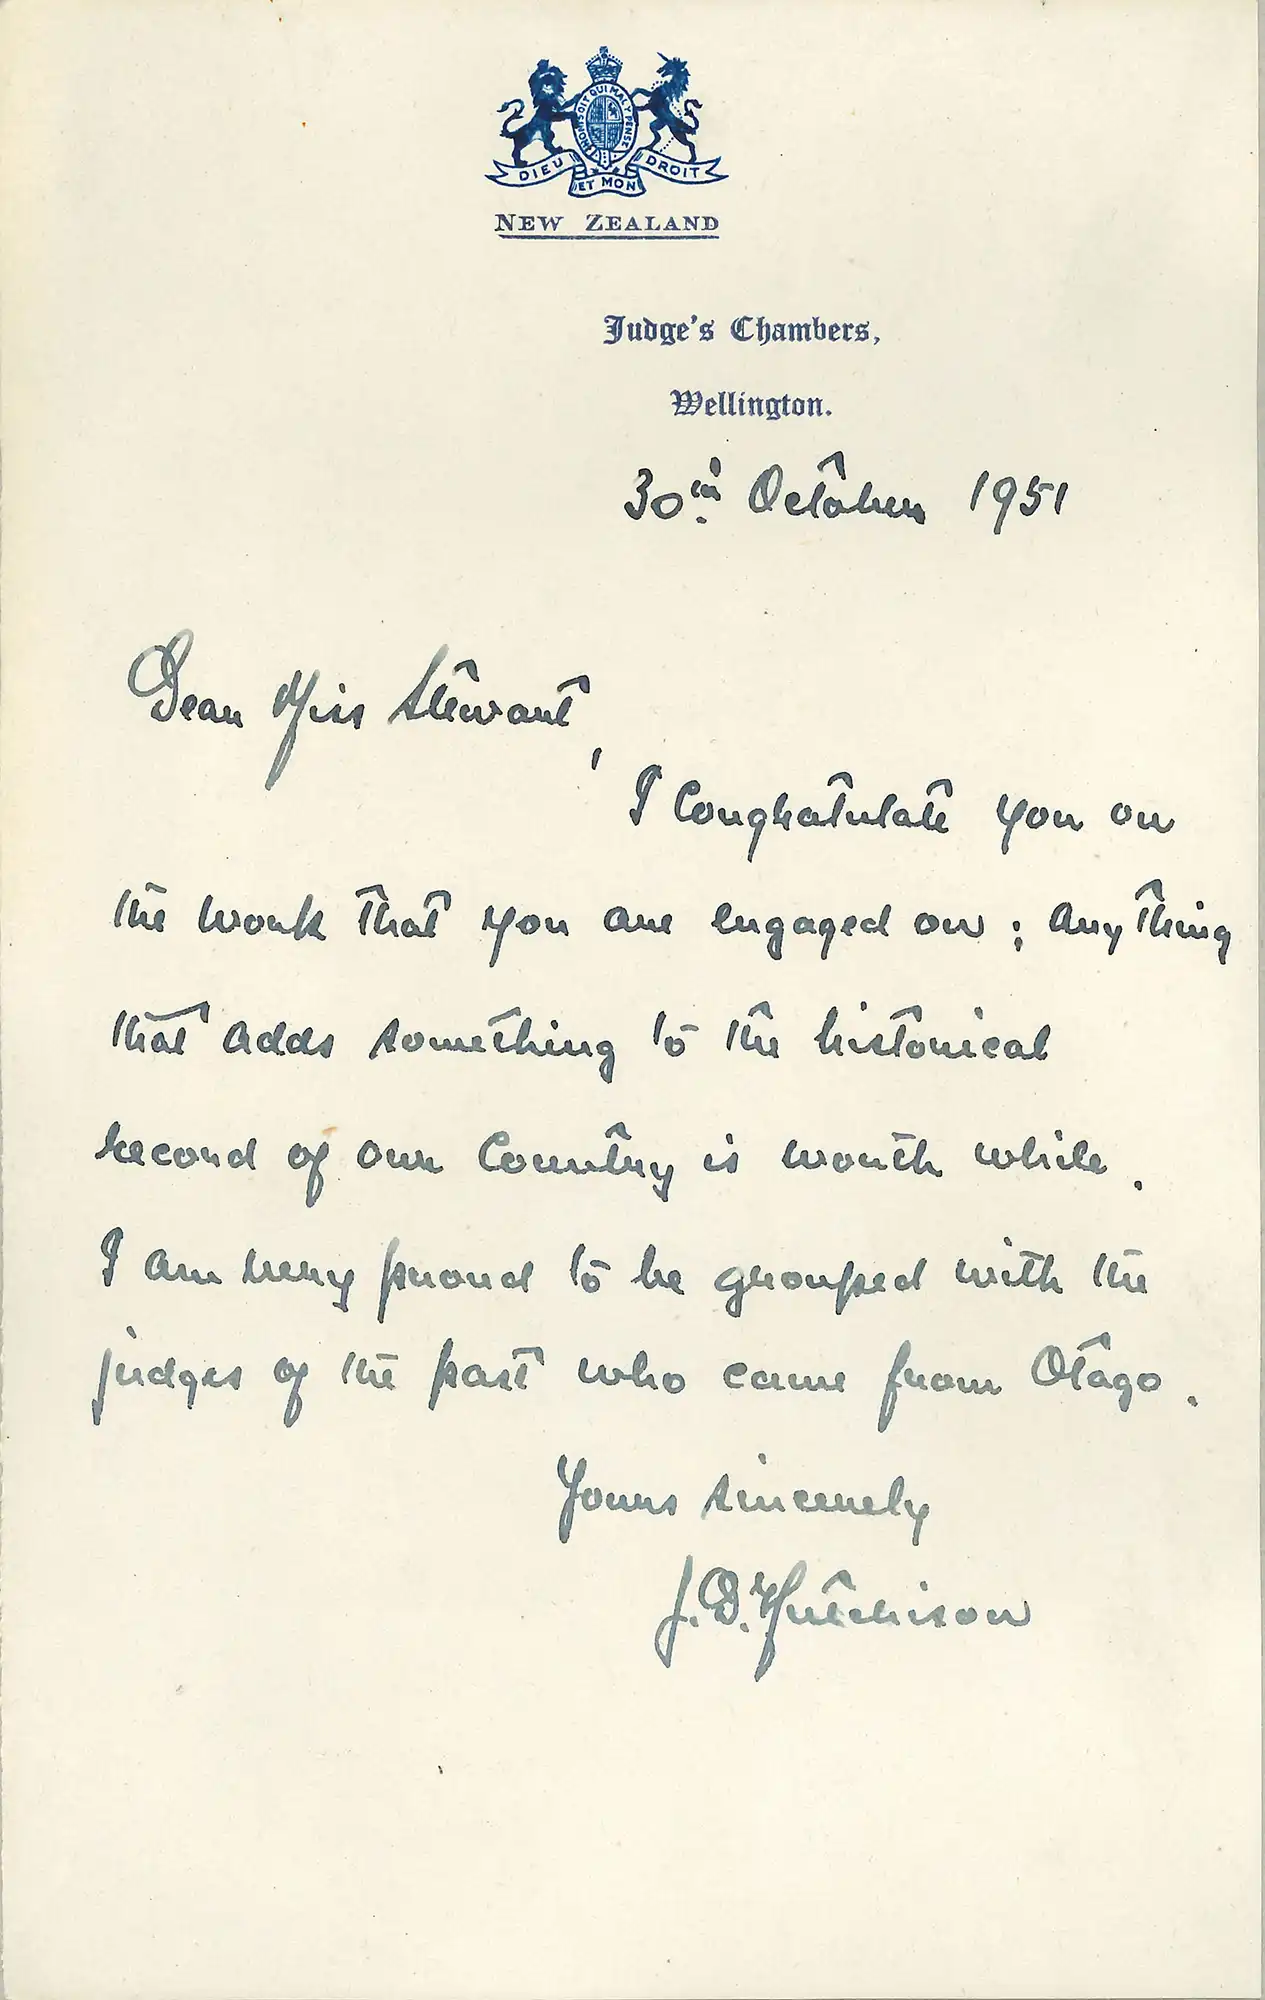 HONI SOIT QUI MAL Y PENSE
DIEU ET MON DROIT
NEW ZEALAND
Judge's Chambers,
Wellington.
30th October 1951
Dear Miss Stewart,
I congratulate you on
the work that you are engaged on; anything
that adds something to the historical
record of our country is worth while.
I am very proud to be grouped with the
judges of the past who came from Otago.
Yours sincerely
J. D. Hutchison